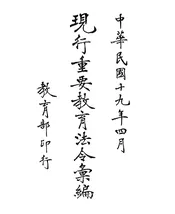 中華民國十九年四月
現行重要教育法令彙編
教育部印行